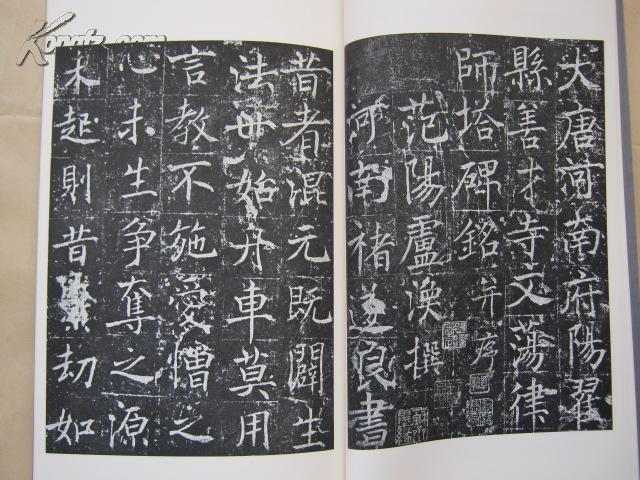 大唐河南府陽翟
縣善才寺文蕩律
師塔碑銘并序
范陽盧渙撰
河南褚遂良書
昔者混元既闢生
法毋始丹車莫用
言教不施愛憎之
心未生爭奪之源
未起則昔劫如
Kongfz.com